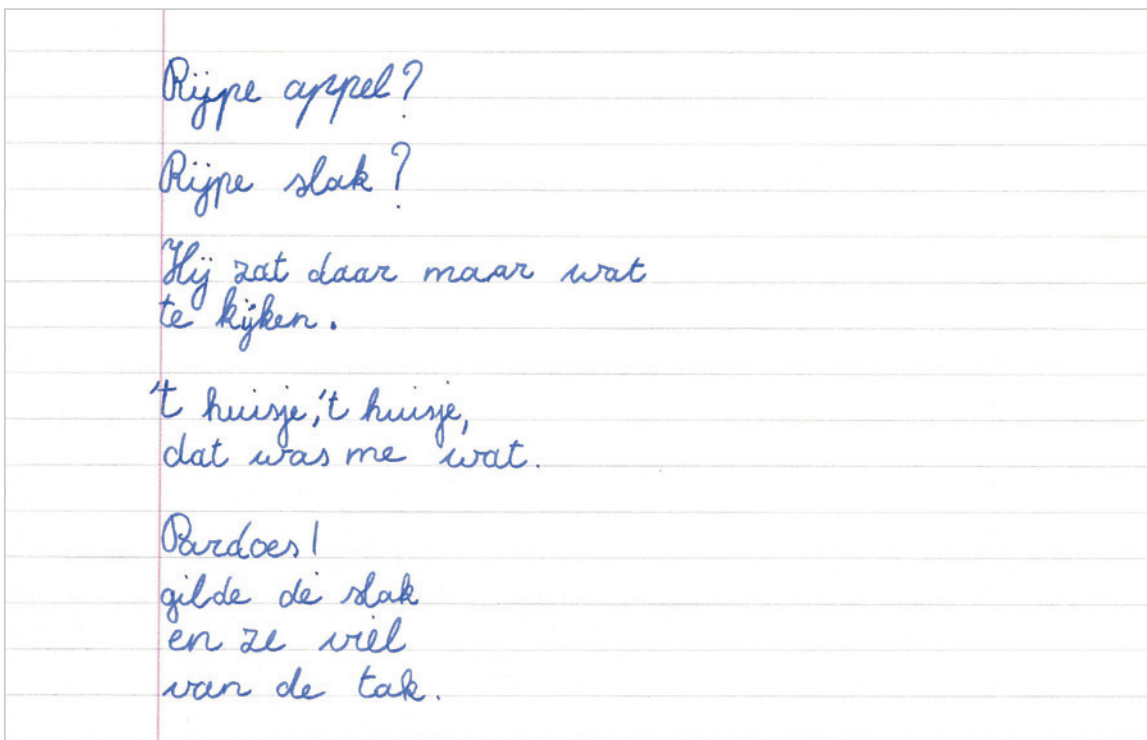 Rijpe appel?
Rijpe slak?
Hij zat daar maar wat
te kijken.
't huisje,'t huisje,
dat was me wat.
Pardoes!
gilde de slak
en ze viel
van de tak.